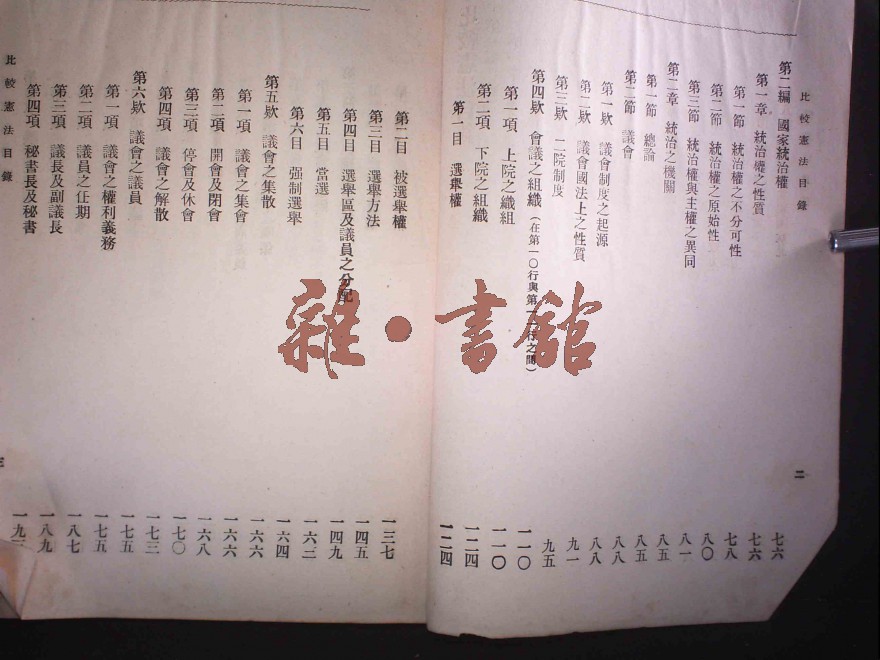 比較憲法目錄
第二編 國家統治權 七六
第一章 統治權之性質 七六
第一節 統治權之不分可性 七八
第二節 統治權之原始性 八〇
第三節 統治權與主權之異同 八一
第二章 統治之機關 八五
第一節 總論 八五
第二節 議會 八八
第一欵 議會制度之起源 八八
第二欵 議會國法上之性質 九一
第三欵 二院制度 九五
第四欵 會議之組織(在第一〇行與第一一行之間) 一一〇
第一項 上院之織組 一一〇
第二項 下院之組織 一二四
第一目 選舉權 一二四
二
第二目 被選舉權 一三七
第三目 選舉方法 一四五
第四目 選舉區及議員之分配 一四九
第五目 當選 一六二
第六目 强制選舉 一六四
第五欵 議會之集散 一六六
第一項 議會之集會 一六六
第二項 開會及閉會 一六八
第三項 停會及休會 一七〇
第四項 議會之解散 一七三
第六欵 議會之議員 一七五
第一項 議會之權利義務 一七五
第二項 議員之任期 一八七
第三項 議長及副議長 一八九
第四項 秘書長及秘書 一九
比較憲法目錄
三
雜·書館